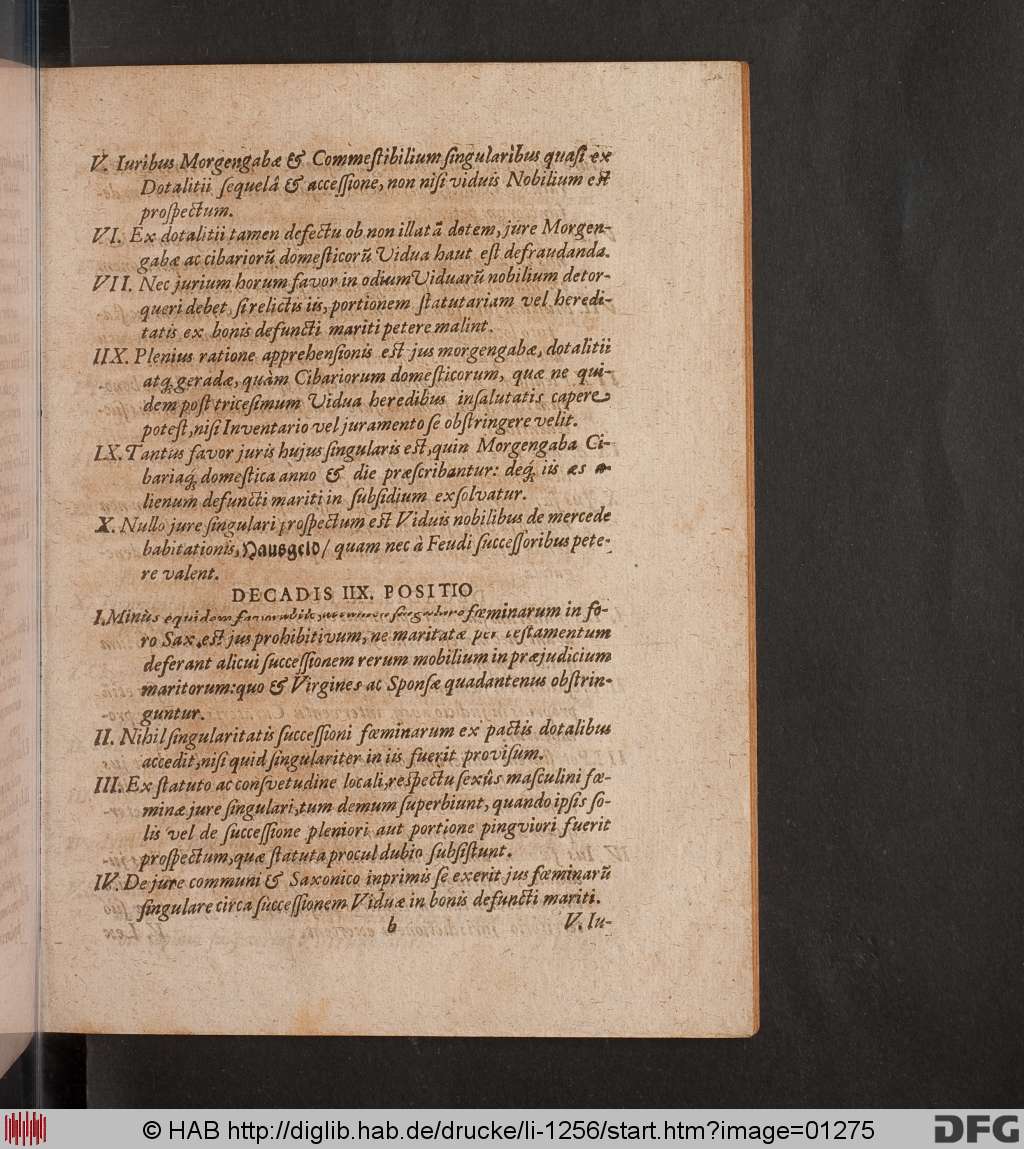 V. Iuribus Morgengabæ & Commeſtibilium ſingularibus quaſi ex
Dotalitii ſequelâ & acceſſione, non niſi viduis Nobilium eſt
proſpectum.
VI. Ex dotalitii tamen defectu ob non illatã dotem, jure Morgen-
gabæ ac cibariorũ domeſticorũ Vidua haut eſt defraudanda.
VII. Nec jurium horum favor in odium Viduarũ nobilium detor-
queri debet, ſi relictis iis, portionem ſtatutariam vel heredi-
tatis ex bonis defuncti mariti petere malint.
IIX. Plenius ratione apprehenſionis eſt jus morgengabæ, dotalitii
atq; geradæ, quàm Cibariorum domeſticorum, quæ ne qui-
dem poſt triceſimum Vidua heredibus inſalutatis capere
poteſt, niſi Inventario vel juramento ſe obſtringere velit.
IX. Tantus favor juris hujus ſingularis eſt, quin Morgengaba Ci-
bariaq; domeſtica anno & die præſcribantur: deq; iis æs a-
lienum defuncti mariti in ſubſidium exſolvatur.
X. Nullo jure ſingulari proſpectum eſt Viduis nobilibus de mercede
habitationis, Hausgeld / quam nec à Feudi ſucceſſoribus pete-
re valent.
DECADIS IIX. POSITIO
I. Minùs equidem favorabile, attamen ſingulare fœminarum in fo-
ro Sax. eſt jus prohibitivum, ne maritatæ per teſtamentum
deferant alicui ſucceſſionem rerum mobilium in præjudicium
maritorum: quo & Virgines ac Sponſæ quadantenus obſtrin-
guntur.
II. Nihil ſingularitatis ſucceſſioni fœminarum ex pactis dotalibus
accedit, niſi quid ſingulariter in iis fuerit proviſum.
III. Ex ſtatuto ac conſvetudine locali, reſpectu ſexûs maſculini fœ-
minæ jure ſingulari, tum demum ſuperbiunt, quando ipſis ſo-
lis vel de ſucceſſione pleniori aut portione pingviori fuerit
proſpectum, quæ ſtatuta procul dubio ſubſiſtunt.
IV. De jure communi & Saxonico inprimis ſe exerit jus fœminarũ
ſingulare circa ſucceſſionem Viduæ in bonis defuncti mariti.
b V. Iu-
© HAB http://diglib.hab.de/drucke/li-1256/start.htm?image=01275
DFG